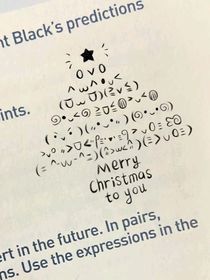 nt Black's predictions
ints.
Merry
Christmas
to you
ert in the future. In pairs,
ns. Use the expressions in the